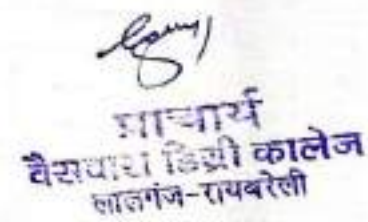 प्राचार्य
वैसवारा डिग्री कालेज
लालगंज-रायबरेली